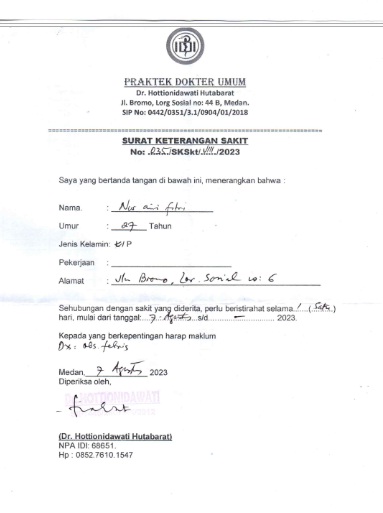 PRAKTEK DOKTER UMUM
Dr. Hottionidawati Hutabarat
Jl. Bromo, Lorg Sosial no: 44 B, Medan.
SIP No: 0442/0351/3.1/0904/01/2018
SURAT KETERANGAN SAKIT
No: 035/SKSkt/VIII/2023
Saya yang bertanda tangan di bawah ini, menerangkan bahwa :
Nama : Nur aini fitri
Umur : 27 Tahun
Jenis Kelamin: L/ P
Pekerjaan :
Alamat : Jln Bromo, Lor. Sosial no: 6
Sehubungan dengan sakit yang diderita, perlu beristirahat selama 1 (Satu)
hari, mulai dari tanggal: 7 Agustus s/d - 2023.
Kepada yang berkepentingan harap maklum
Dx: obs febris
Medan, 7 Agustus 2023
Diperiksa oleh,
HOTTIONIDAWATI
(Dr. Hottionidawati Hutabarat)
NPA IDI: 68651.
Hp : 0852.7610.1547